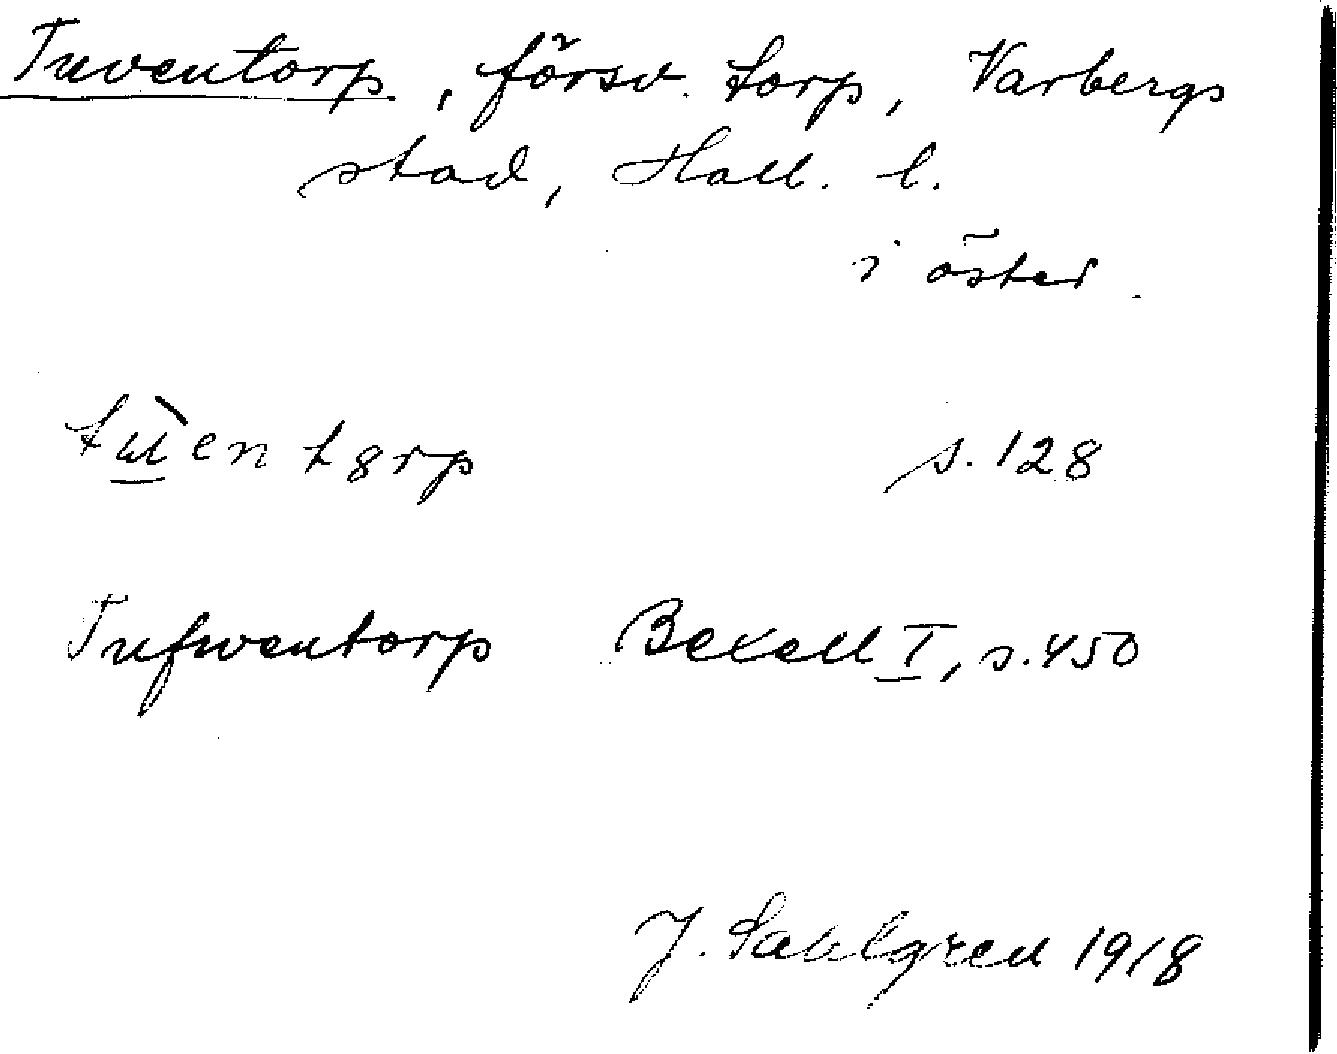 Tuventorp, försv. torp, Varbergs
stad, Hall. l.
i öster.
s. 128
Tufwentorp Bexell I, s. 450
J. Sahlgren 1918